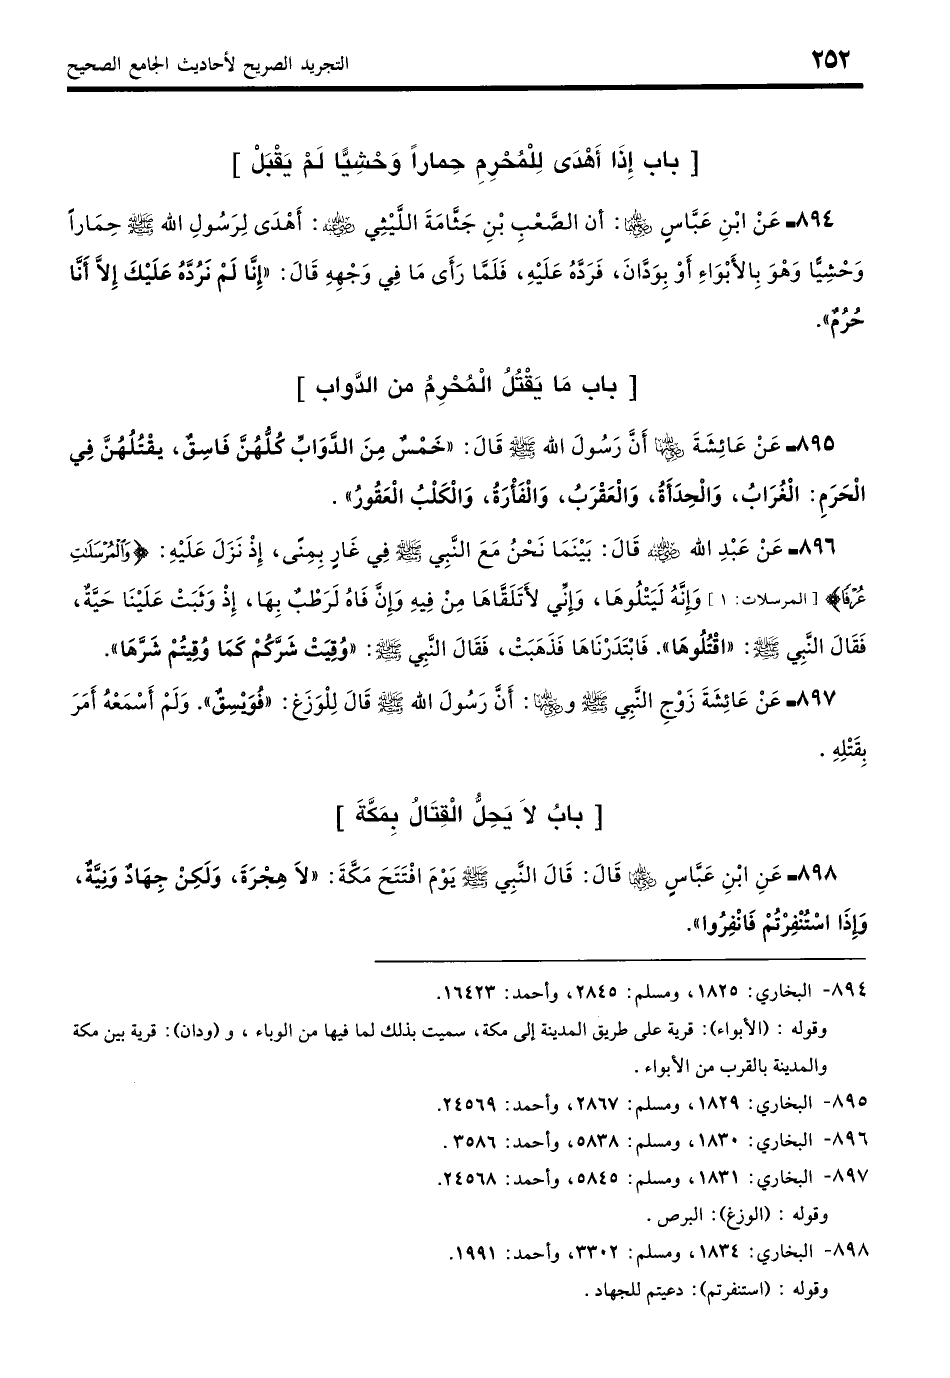 ٢٥٢
التجريد الصريح لأحاديث الجامع الصحيح
[ باب إِذَا أَهْدَى لِلْمُحْرِمِ حِماراً وَحْشِيًّا لَمْ يَقْبَلْ ]
٨٩٤ـ عَنْ ابْنِ عَبَّاسٍ رضي الله عنهما: أن الصَّعْبِ بْنِ جَثَّامَةَ اللَّيْثِي رضي الله عنه: أَهْدَى لِرَسُولِ الله ﷺ حِمَاراً
وَحْشِيًّا وَهْوَ بِالأَبْوَاءِ أَوْ بِوَدَّانَ، فَرَدَّهُ عَلَيْهِ، فَلَمَّا رَأَى مَا فِي وَجْهِهِ قَالَ: «إِنَّا لَمْ نَرُدَّهُ عَلَيْكَ إِلاَّ أَنَّا
حُرُمٌ».
[ باب مَا يَقْتُلُ الْمُحْرِمُ من الدَّواب ]
٨٩٥ـ عَنْ عَائِشَةَ رضي الله عنها أَنَّ رَسُولَ الله ﷺ قَالَ: «خَمْسٌ مِنَ الدَّوَابِّ كُلُّهُنَّ فَاسِقٌ، يقْتُلُهُنَّ فِي
الْحَرَمِ: الْغُرَابُ، وَالْحِدَأَةُ، وَالْعَقْرَبُ، وَالْفَأْرَةُ، وَالْكَلْبُ الْعَقُورُ» .
٨٩٦ـ عَنْ عَبْدِ الله رضي الله عنه قَالَ: بَيْنَمَا نَحْنُ مَعَ النَّبِي ﷺ فِي غَارٍ بِمِنًى، إِذْ نَزَلَ عَلَيْهِ: ﴿وَٱلْمُرْسَلَٰتِ
عُرْفًا﴾ [ المرسلات: ١ ] وَإِنَّهُ لَيَتْلُوهَا، وَإِنِّي لأَتَلَقَّاهَا مِنْ فِيهِ وَإِنَّ فَاهُ لَرَطْبٌ بِهَا، إِذْ وَثَبَتْ عَلَيْنَا حَيَّةٌ،
فَقَالَ النَّبِي ﷺ: «اقْتُلُوهَا». فَابْتَدَرْنَاهَا فَذَهَبَتْ، فَقَالَ النَّبِي ﷺ: «وُقِيَتْ شَرَّكُمْ كَمَا وُقِيتُمْ شَرَّهَا».
٨٩٧ـ عَنْ عَائِشَةَ زَوْجِ النَّبِي ﷺ ورضي الله عنها: أَنَّ رَسُولَ الله ﷺ قَالَ لِلْوَزَغِ: «فُوَيْسِقٌ». وَلَمْ أَسْمَعْهُ أَمَرَ
بِقَتْلِهِ .
[ بابُ لاَ يَحِلُّ الْقِتَالُ بِمَكَّةَ ]
٨٩٨ـ عَنِ ابْنِ عَبَّاسٍ رضي الله عنهما قَالَ: قَالَ النَّبِي ﷺ يَوْمَ افْتَتَحَ مَكَّةَ: «لاَ هِجْرَةَ، وَلَكِنْ جِهَادٌ وَنِيَّةٌ،
وَإِذَا اسْتُنْفِرْتُمْ فَانْفِرُوا».
٨٩٤- البخاري: ١٨٢٥، ومسلم: ٢٨٤٥، وأحمد: ١٦٤٢٣.
وقوله : (الأبواء): قرية على طريق المدينة إلى مكة، سميت بذلك لما فيها من الوباء ، و (ودان): قرية بين مكة
والمدينة بالقرب من الأبواء .
٨٩٥- البخاري: ١٨٢٩، ومسلم: ٢٨٦٧، وأحمد: ٢٤٥٦٩.
٨٩٦- البخاري: ١٨٣٠، ومسلم: ٥٨٣٨، وأحمد: ٣٥٨٦ .
٨٩٧- البخاري: ١٨٣١، ومسلم: ٥٨٤٥، وأحمد: ٢٤٥٦٨.
وقوله : (الوزغ): البرص .
٨٩٨- البخاري: ١٨٣٤، ومسلم: ٣٣٠٢، وأحمد: ١٩٩١.
وقوله : (استنفرتم): دعيتم للجهاد .